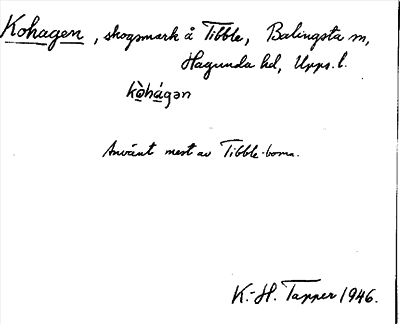 Kohagen, skogsmark å Tibble, Balingsta sn,
Hagunda hd, Upps. l.
kò̱há̱gən
Använt mest av Tibble-borna.
K.-H. Tapper 1946.